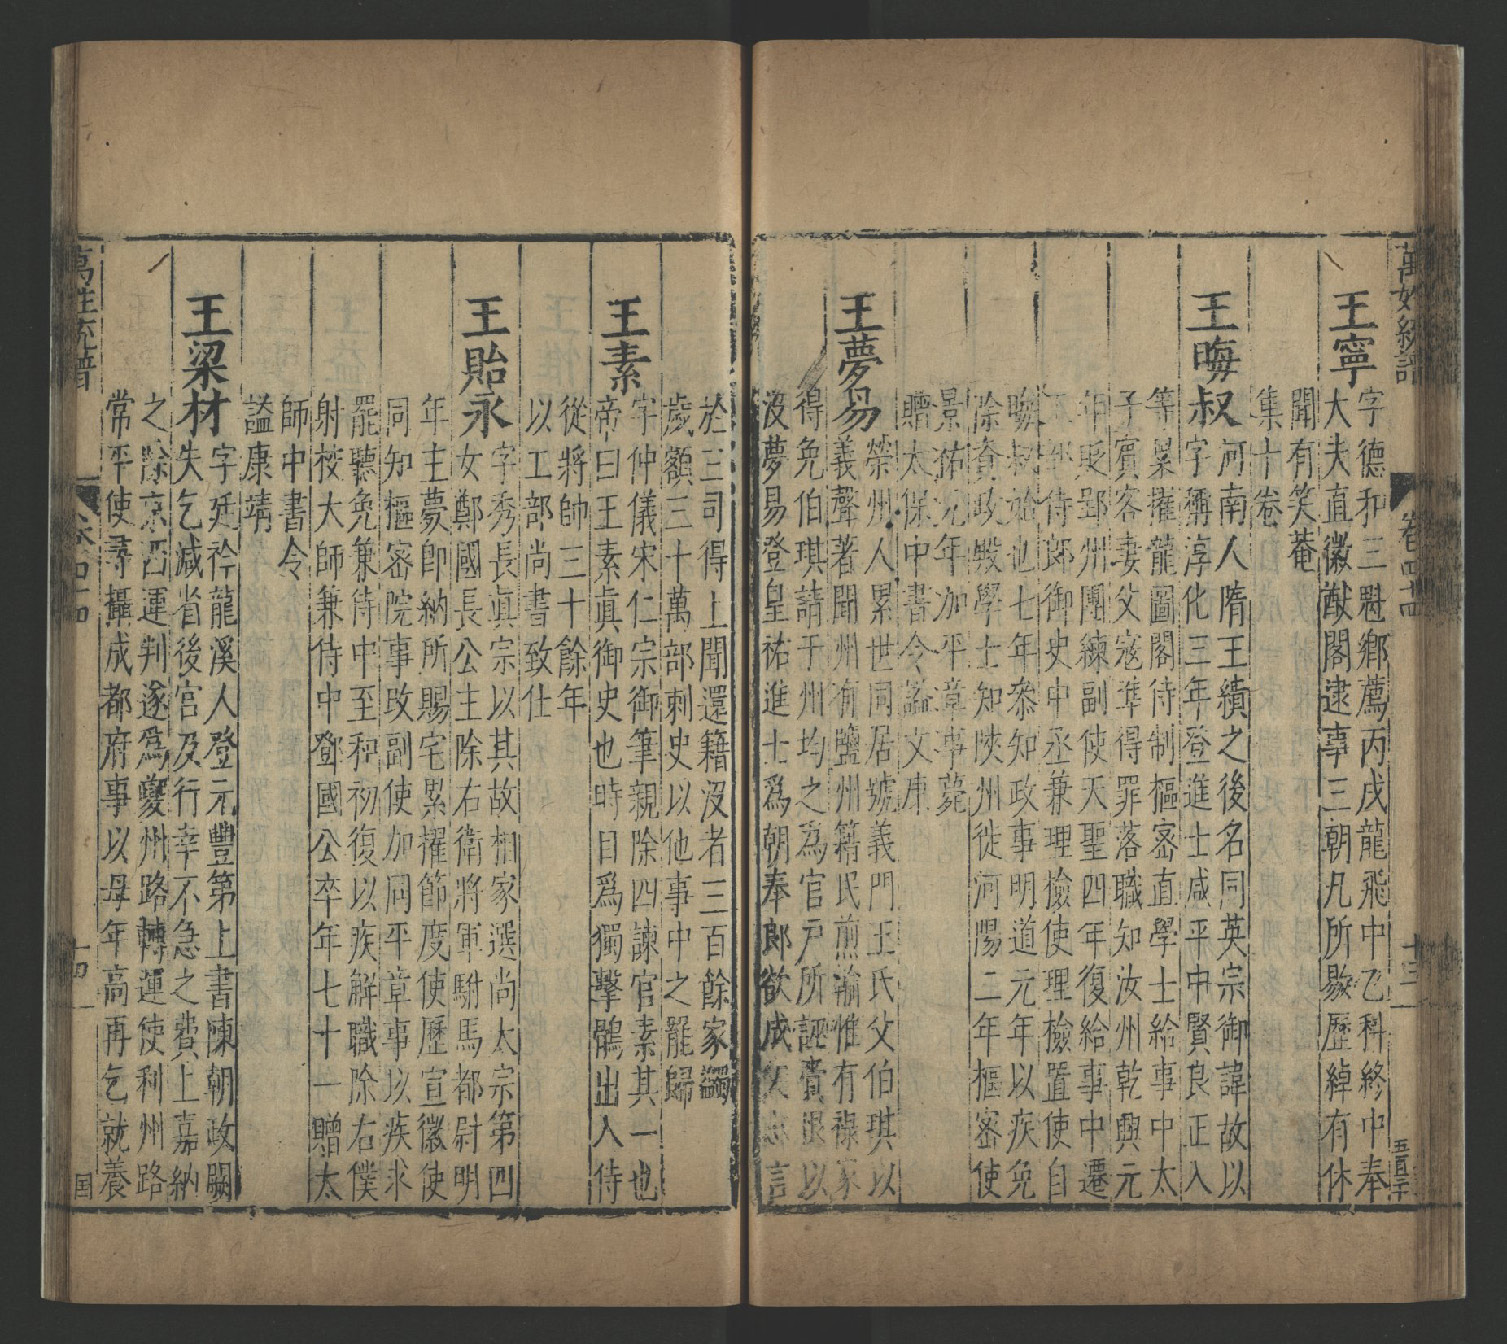 萬姓統譜 卷四十四 十三
王寧 字德和三魁鄉薦丙戌龍飛中乙科終中奉
大夫直徽猷閣逮事三朝凡所敭歷綽有休
聞有笑菴
集十卷
王晦叔 河南人隋王績之後名同英宗御諱故以
字稱淳化三年登進士咸平中賢良正入
等累擢龍圖閣待制樞密直學士給事中太
子賓客妻父寇準得罪落職知汝州乾興元
年貶郢州團練副使天聖四年復給事中遷
侍郎御史中丞兼理檢使理檢置使自
晦叔始也七年叅知政事明道元年以疾免
除資政殿學士知陝州徙河陽二年樞密使
景祐元年加平章事薨
贈太保中書令謚文康
王夢易 榮州人累世同居號義門王氏父伯琪以
義聲著聞州有鹽州籍民煎瀹惟有祿家
得免伯琪請于州均之為官戶所誣賫恨以
沒夢易登皇祐進士爲朝奉郎欲成父志言
於三司得上聞還籍沒者三百餘家蠲
歲額三十萬部刺史以他事中之罷歸
王素 字仲儀宋仁宗御筆親除四諫官素其一也
帝曰王素眞御史也時目爲獨擊鶻出入侍
從將帥三十餘年
以工部尚書致仕
王貽永 字秀長眞宗以其故相家選尚太宗第四
女鄭國長公主除右衛將軍駙馬都尉明
年主薨卽納所賜宅累擢節度使歷宣徽使
同知樞密院事改副使加同平章事以疾求
罷聽免兼侍中至和初復以疾解職除右僕
射校大師兼侍中鄧國公卒年七十一贈太
師中書令
謚康靖
王梁材 字廷衿龍溪人登元豐第上書陳朝政闕
失乞減省後官及行幸不急之費上嘉納
之除京西運判遂爲夔州路轉運使利州路
常平使尋攝成都府事以母年高再乞就養
萬姓統譜 卷四十四 十四